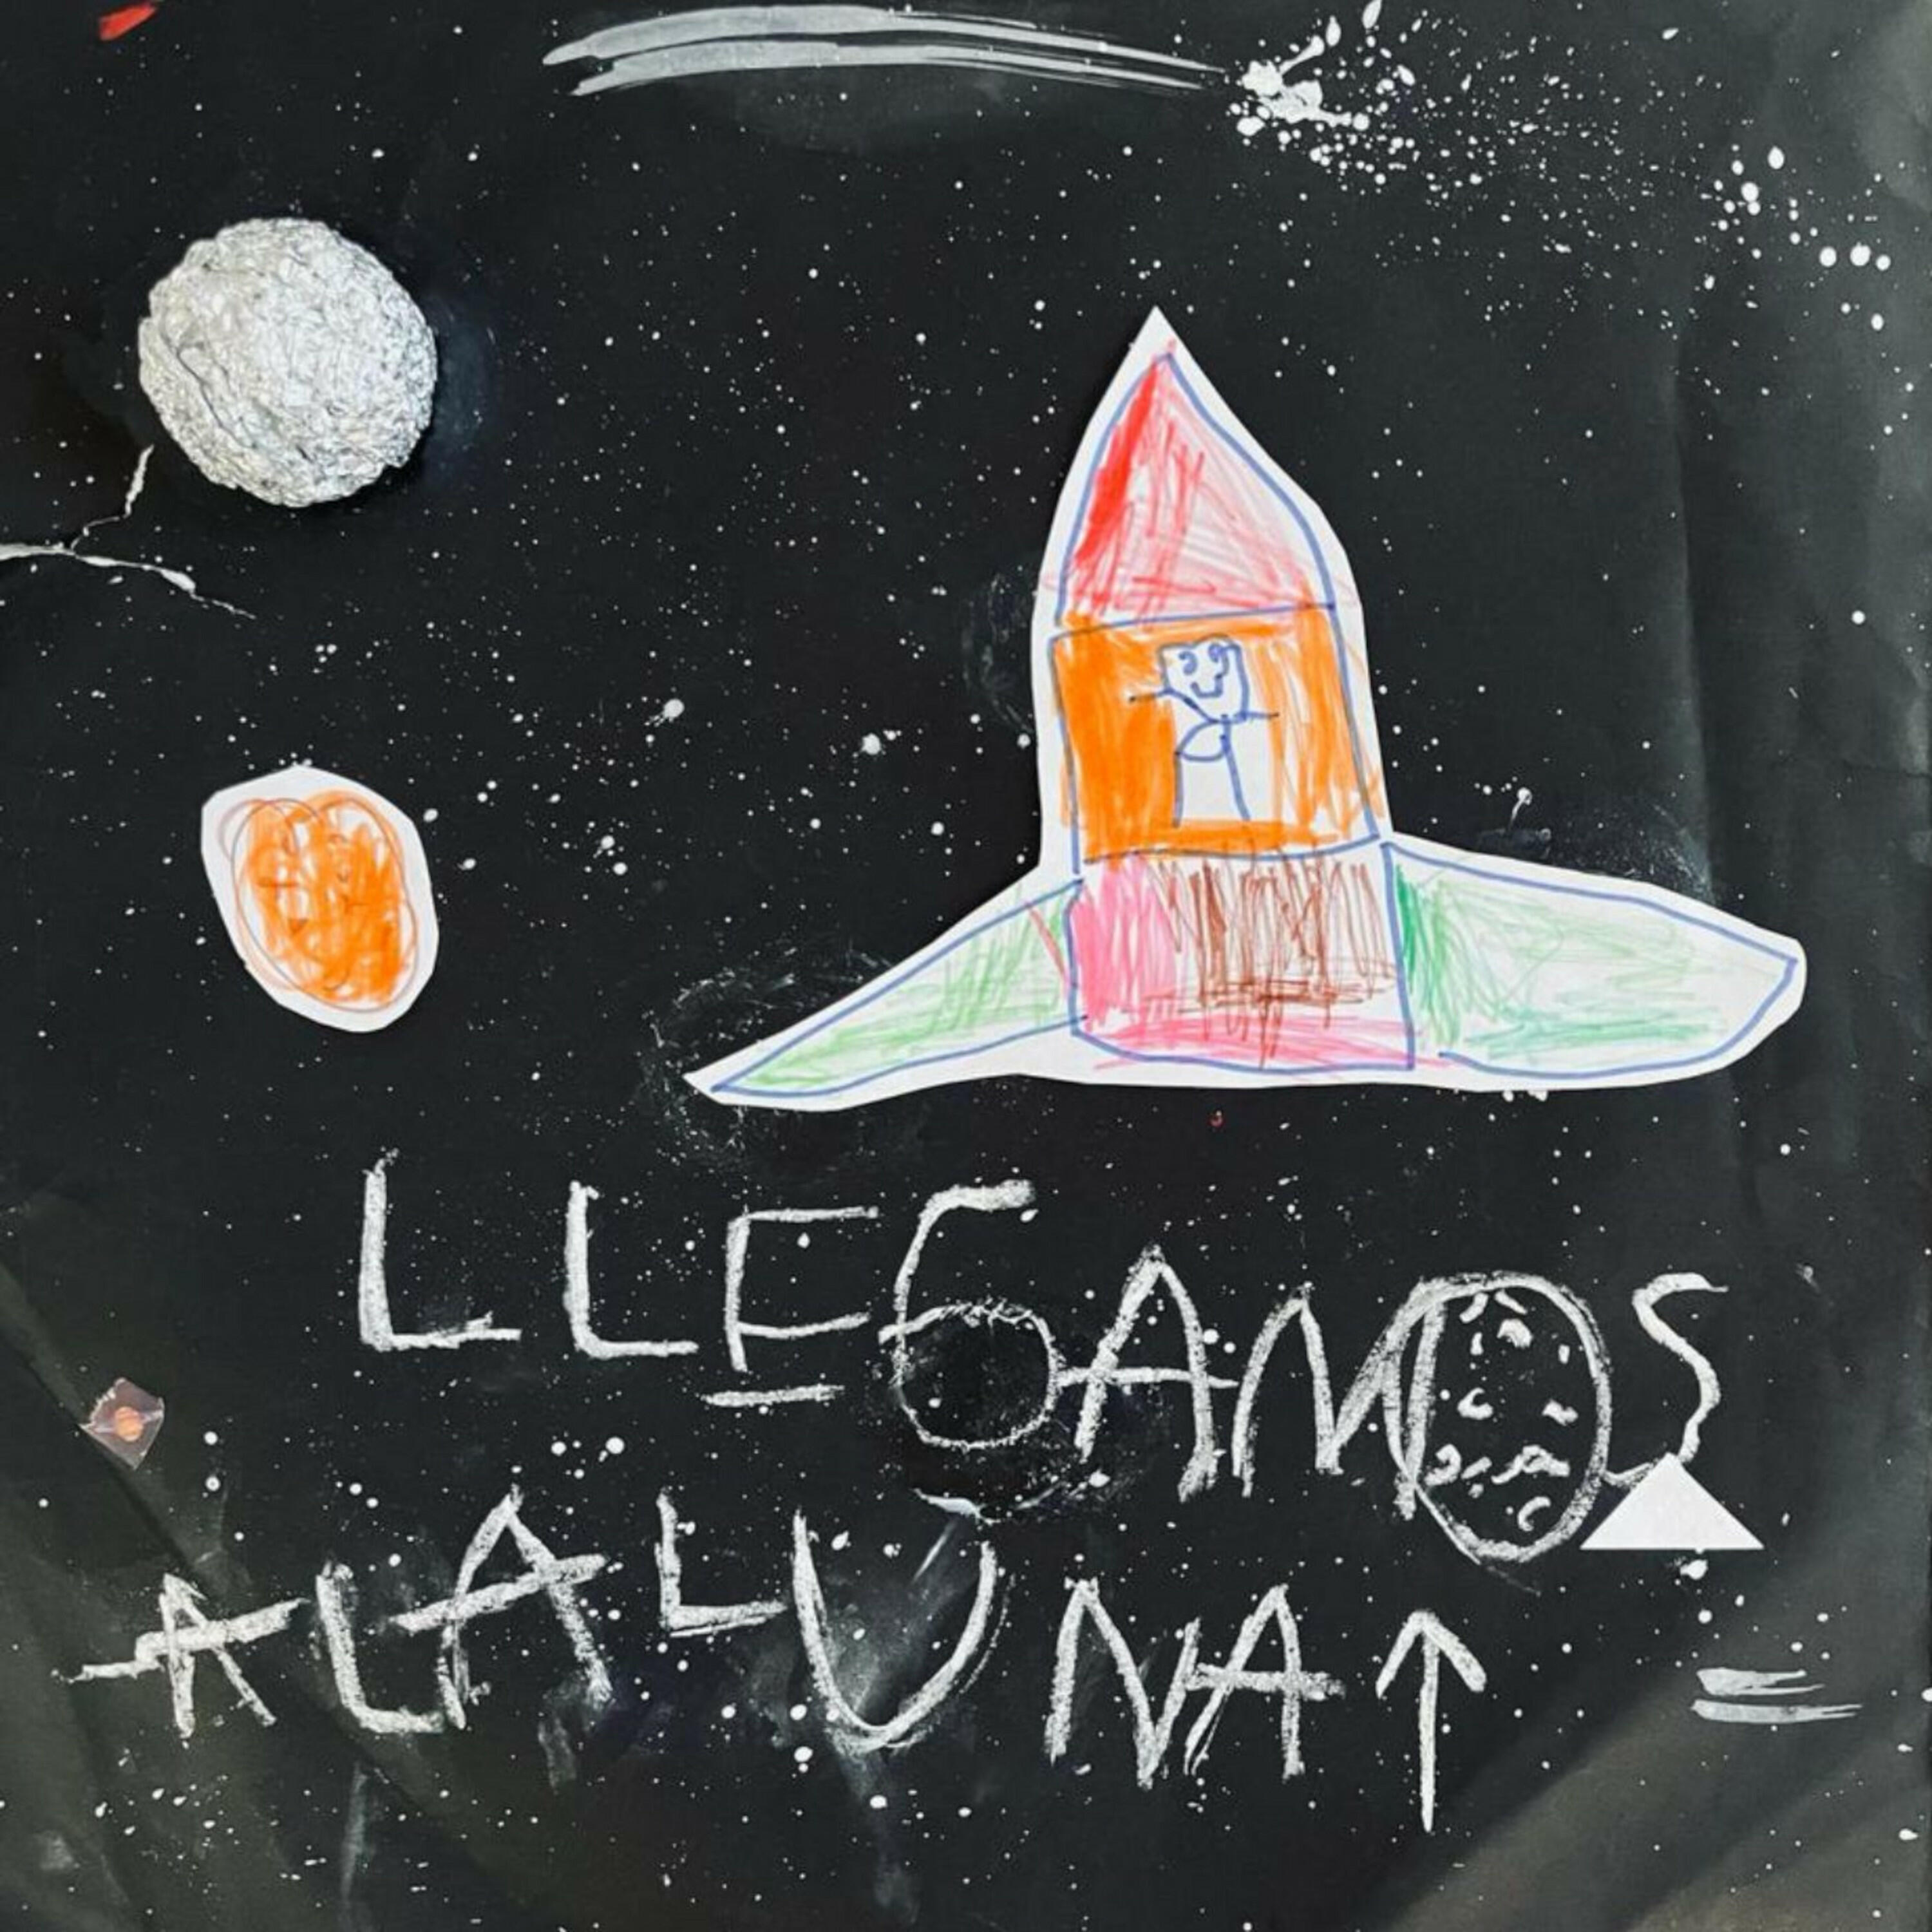 LLEGAMOS
A LA LUNA↑